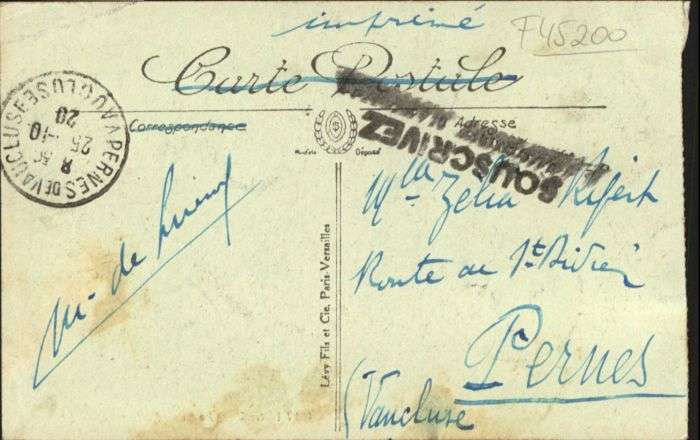 imprimé
F45200
Carte Postale
Correspondance
Adresse
Modèle Déposé
PERNES DE VAUCLUSE VAUCLUSE
8 50
25 - 10
20
SOUSCRIVEZ
M. de
Mlle Zélia
Route de St
Pernes
(Vaucluse
Lévy Fils et Cie, Paris-Versailles